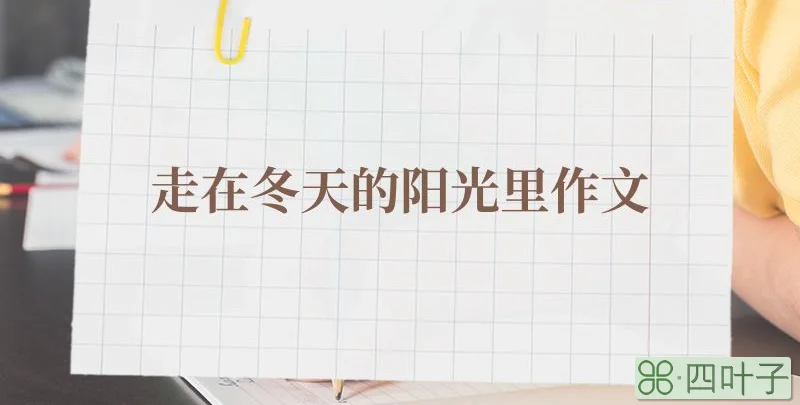 走在冬天的阳光里作文
四叶子